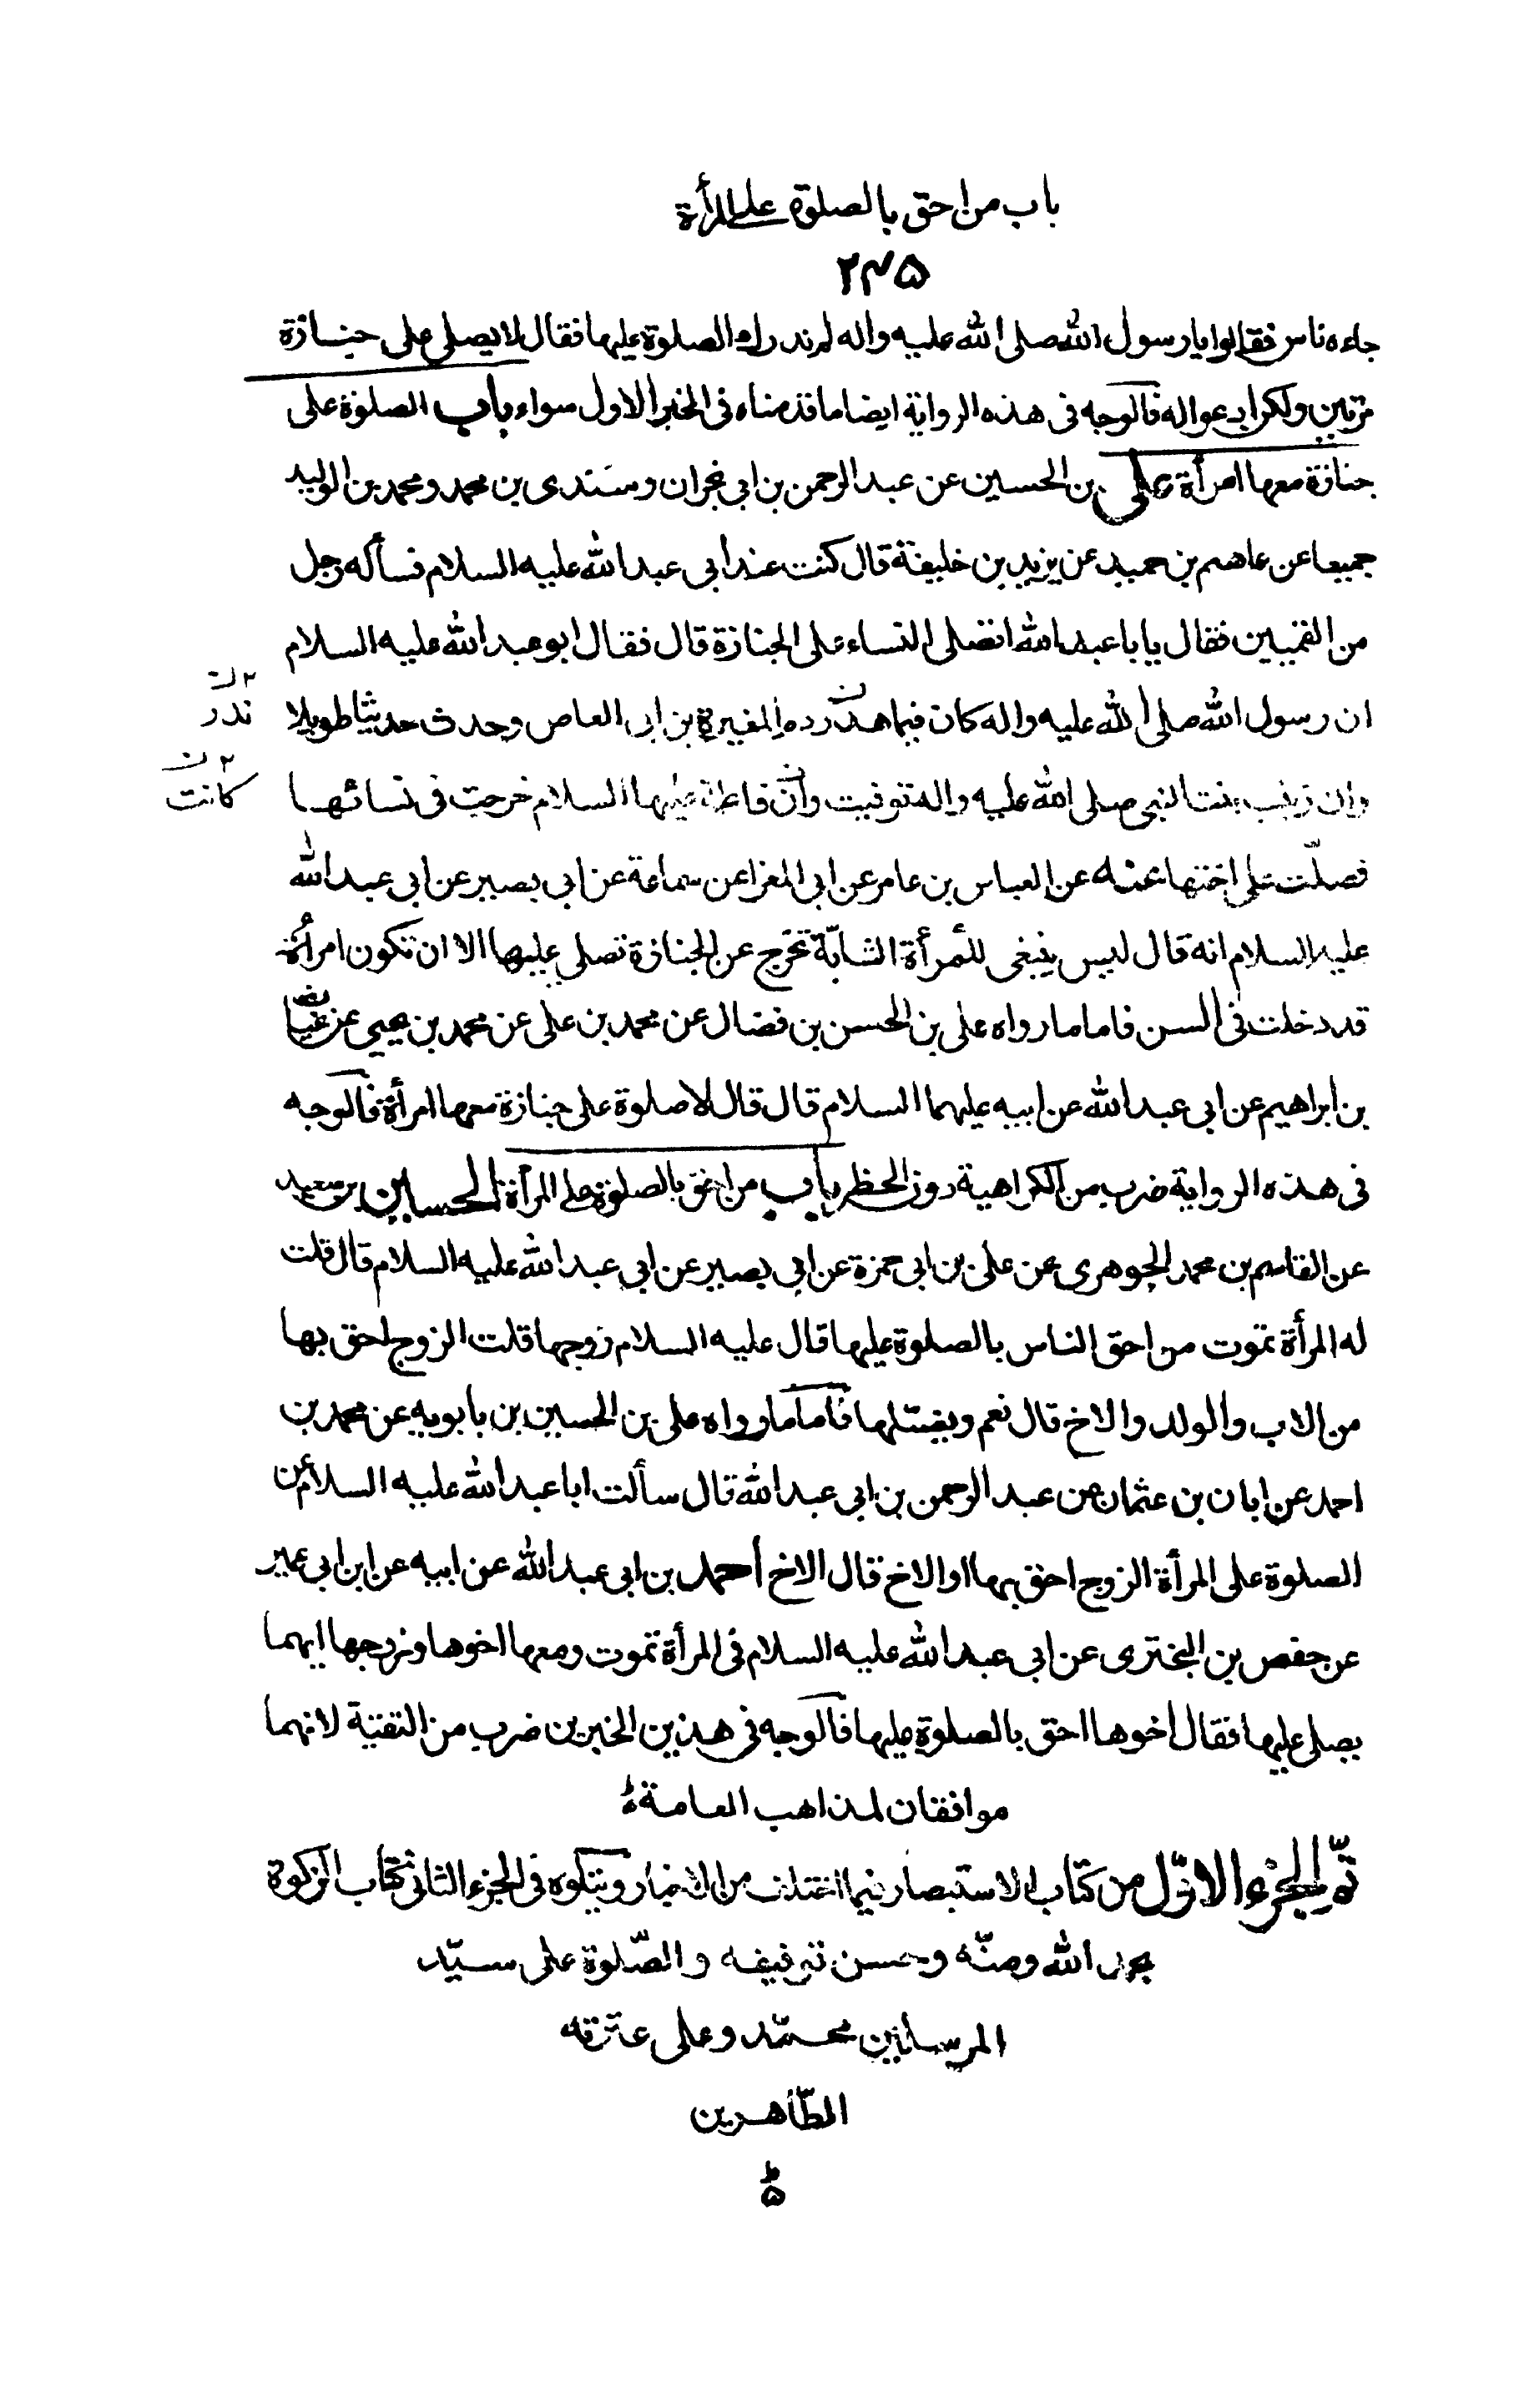 باب من احق بالصلوة على المرأة
٢٤٥
جاءه ناس فقالوا يا رسول الله صلى الله عليه واله لم ندرك الصلوة عليها فقال لا يصلى على جنازة
مرتين ولكن ادعوا له فالوجه فى هذه الرواية ايضا ما قدمناه فى الخبر الاول سواء باب الصلوة على
جنازة معها امرأة على بن الحسين عن عبد الرحمن بن ابى نجران وسندى بن محمد ومحمد بن الوليد
جميعا عن عاصم بن حميد عن يزيد بن خليفة قال كنت عند ابى عبد الله عليه السلام فسأله رجل
من القميين فقال يا با عبد الله اتصلى النساء على الجنازة قال فقال ابو عبد الله عليه السلام
ان رسول الله صلى الله عليه واله كان فيما هدر دم المغيرة بن ابى العاص وحدث حديثا طويلا
ن
٢ ن
ندر
وان زينب بنت النبى صلى الله عليه واله توفيت وان فاطمة عليها السلام خرجت فى نسائها
ن
٢ ن
كانت
فصلّت على اختها عنه عن العباس بن عامر عن ابى المغرا عن سماعة عن ابى بصير عن ابى عبد الله
عليه السلام انه قال ليس ينبغى للمرأة الشابّة تخرج عن الجنازة تصلى عليها الا ان تكون امرأة
قد دخلت فى السن فاما ما رواه على بن الحسن بن فضال عن محمد بن على عن محمد بن يحيى عن غياث
بن ابراهيم عن ابى عبد الله عن ابيه عليهما السلام قال قال لا صلوة على جنازة معها امرأة فالوجه
فى هذه الرواية ضرب من الكراهية دون الحظر باب من احق بالصلوة على المرأة الحسين بن سعيد
عن القاسم بن محمد الجوهرى عن على بن ابى حمزة عن ابى بصير عن ابى عبد الله عليه السلام قال قلت
له المرأة تموت من احق الناس بالصلوة عليها قال عليه السلام زوجها قلت الزوج احق بها
من الاب والولد والاخ قال نعم ويغسّلها فاما ما رواه على بن الحسين بن بابويه عن محمد بن
احمد عن ابان بن عثمان عن عبد الرحمن بن ابى عبد الله قال سألت ابا عبد الله عليه السلام عن
الصلوة على المرأة الزوج احق بها او الاخ قال الاخ احمد بن ابى عبد الله عن ابيه عن ابن ابى عمير
عن حفص بن البخترى عن ابى عبد الله عليه السلام فى المرأة تموت ومعها اخوها وزوجها ايهما
يصلى عليها فقال اخوها احق بالصلوة عليها فالوجه فى هذين الخبرين ضرب من التقية لانهما
موافقان لمذاهب العامة
تمّ الجزء الاوّل من كتاب الاستبصار فيما اختلف من الاخبار ويتلوه فى الجزء الثانى كتاب الزكوة
بحمد الله ومنّه وحسن توفيقه والصّلوة على سيّد
المرسلين محمّد وعلى عترته
الطّاهرين